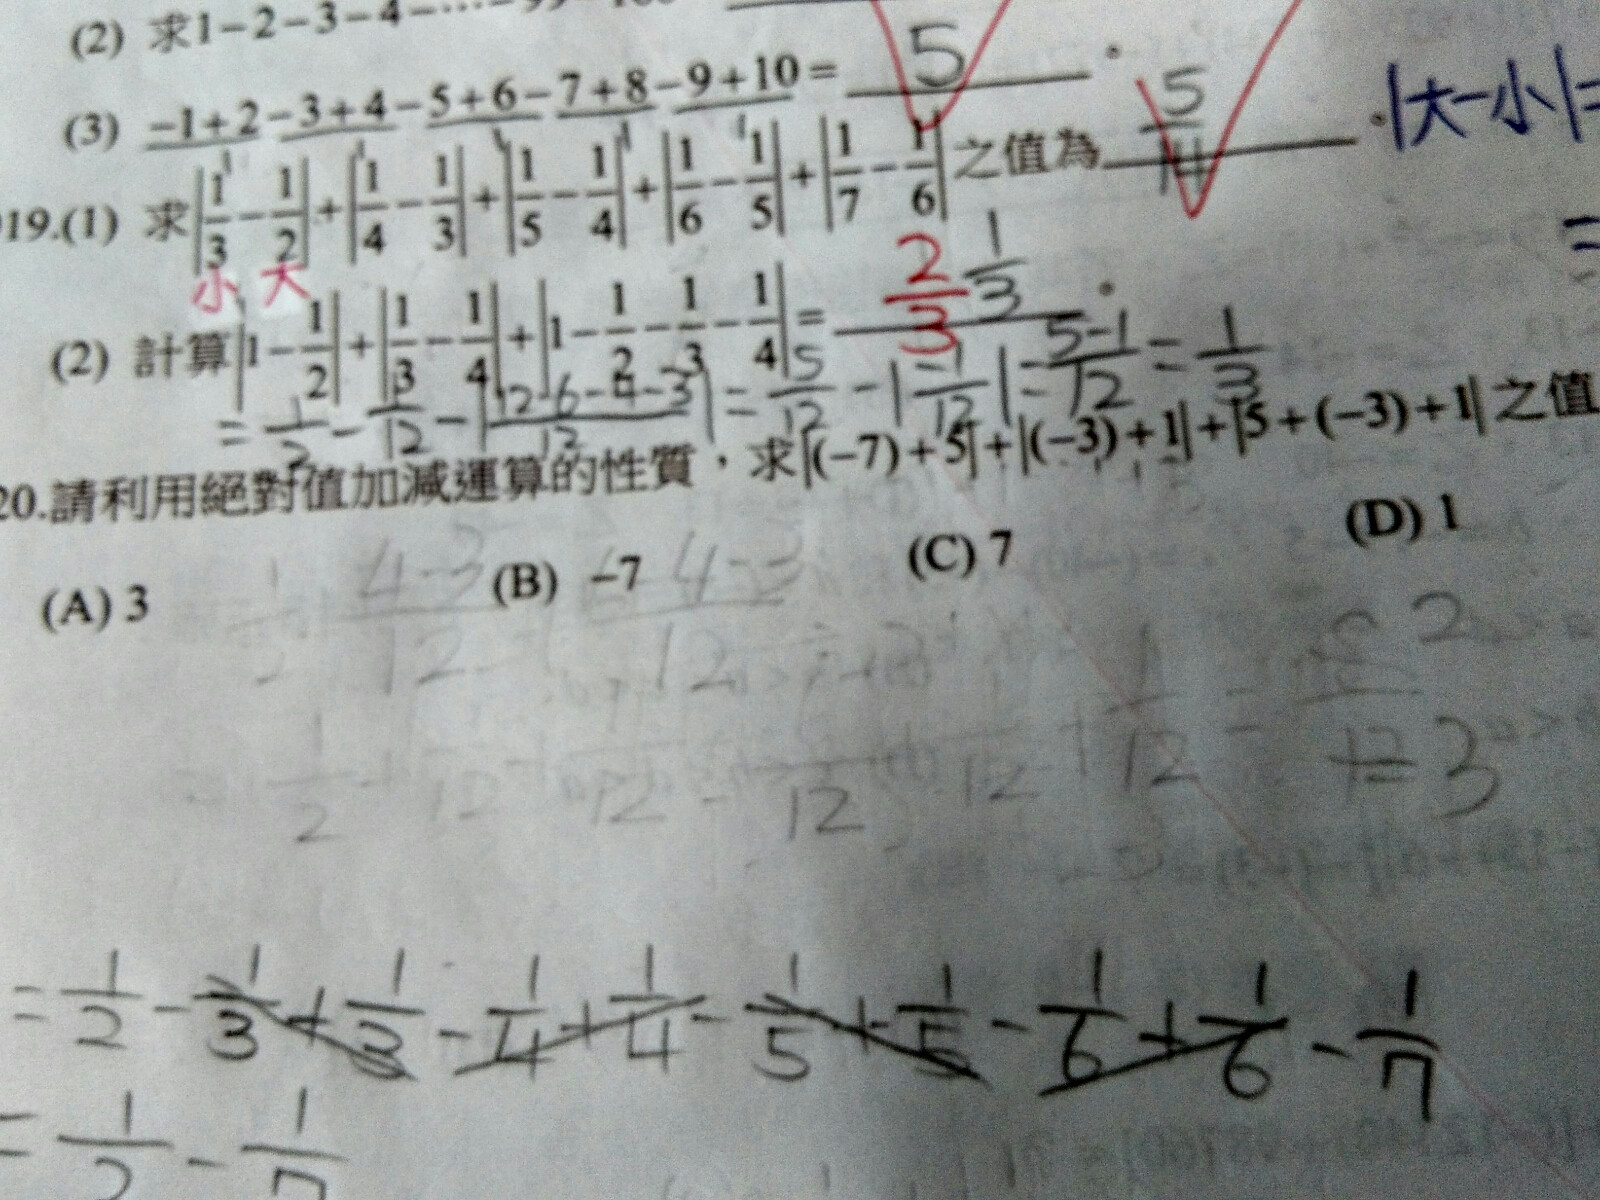 (2) 求1－2－3－4－…－99－100
(3) －1+2－3+4－5+6－7+8－9+10＝ 5 。
19.(1) 求|1/3－1/2|+|1/4－1/3|+|1/5－1/4|+|1/6－1/5|+|1/7－1/6|之值為 5/14 。|大-小|=
小 大
(2) 計算|1－1/2|+|1/3－1/4|+|1－1/2－1/3－1/4|＝ 2/3 1/3 。
= 1/2 - 1/12 - |12-6-4-3/12| = 5/12 - |-1/12| = 5-1/12 = 1/3
20.請利用絕對值加減運算的性質，求|(−7)+5|+|(−3)+1|+|5+(−3)+1|之值
(A) 3 (B) －7 (C) 7 (D) 1
= 1/2 - 1/3 + 1/3 - 1/4 + 1/4 - 1/5 + 1/5 - 1/6 + 1/6 - 1/7
= 1/2 - 1/7